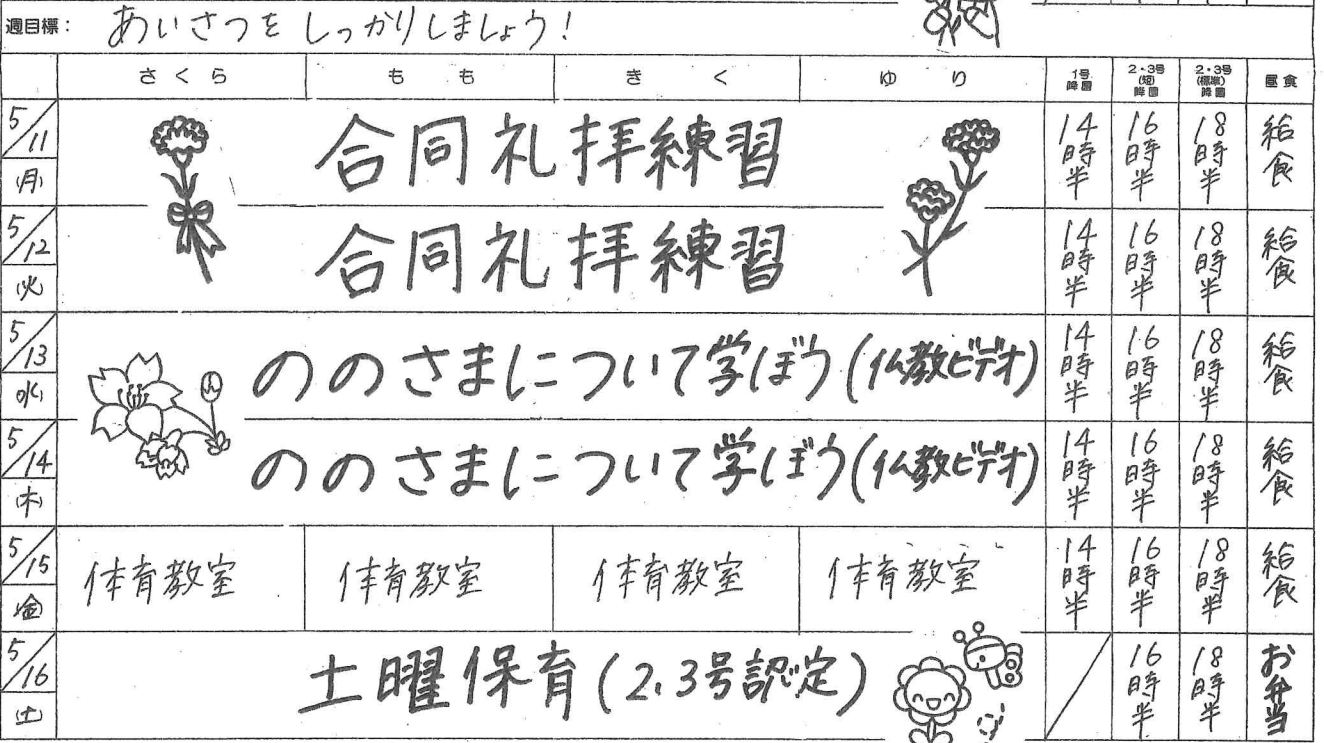 週目標： あいさつを しっかりしましょう！
さくら もも きく ゆり 1号降園 2・3号(短)降園 2・3号(標準)降園 昼食
5/11 (月) 合同礼拝練習 14時半 16時半 18時半 給食
5/12 (火) 合同礼拝練習 14時半 16時半 18時半 給食
5/13 (水) ののさまについて学ぼう(仏教ビデオ) 14時半 16時半 18時半 給食
5/14 (木) ののさまについて学ぼう(仏教ビデオ) 14時半 16時半 18時半 給食
5/15 (金) 体育教室 体育教室 体育教室 体育教室 14時半 16時半 18時半 給食
5/16 (土) 土曜保育(2.3号認定) 16時半 18時半 お弁当